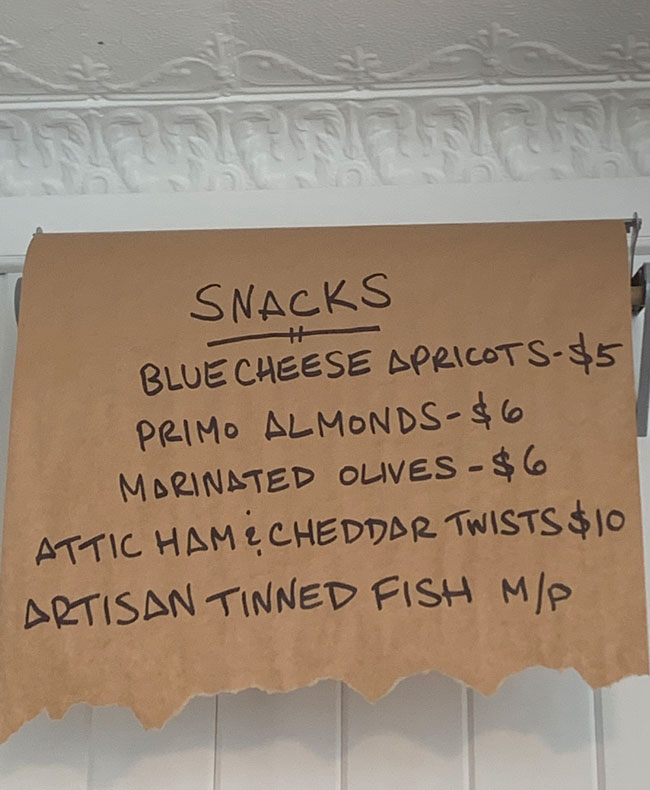 SNACKS
BLUE CHEESE APRICOTS-$5
PRIMO ALMONDS-$6
MARINATED OLIVES-$6
ATTIC HAM & CHEDDAR TWISTS $10
ARTISAN TINNED FISH M/P